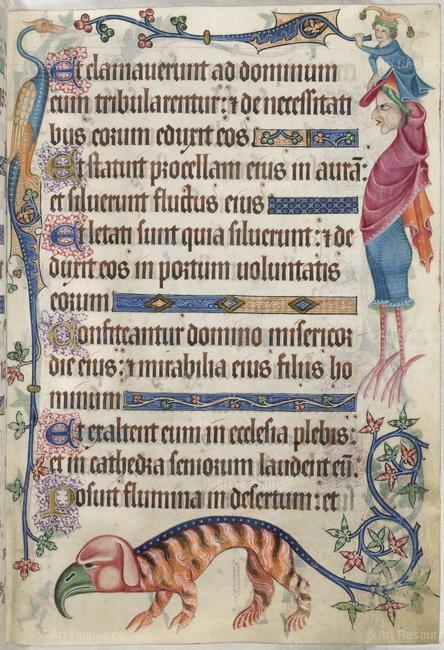 Et clamauerunt ad dominum
cum tribularentur: ⁊ de necessitati
bus eorum eduxit eos
Et statuit procellam eius in aurā:
et siluerunt fluctus eius
Et letati sunt quia siluerunt: ⁊ de
duxit eos in portum uoluntatis
eorum
Confiteantur domino misericor
die eius: ⁊ mirabilia eius filiis ho
minum
Et exaltent eum in ecclesia plebis:
et in cathedra seniorum laudent eū.
Posuit flumina in desertum: et
© Art Resource
© Art Resource